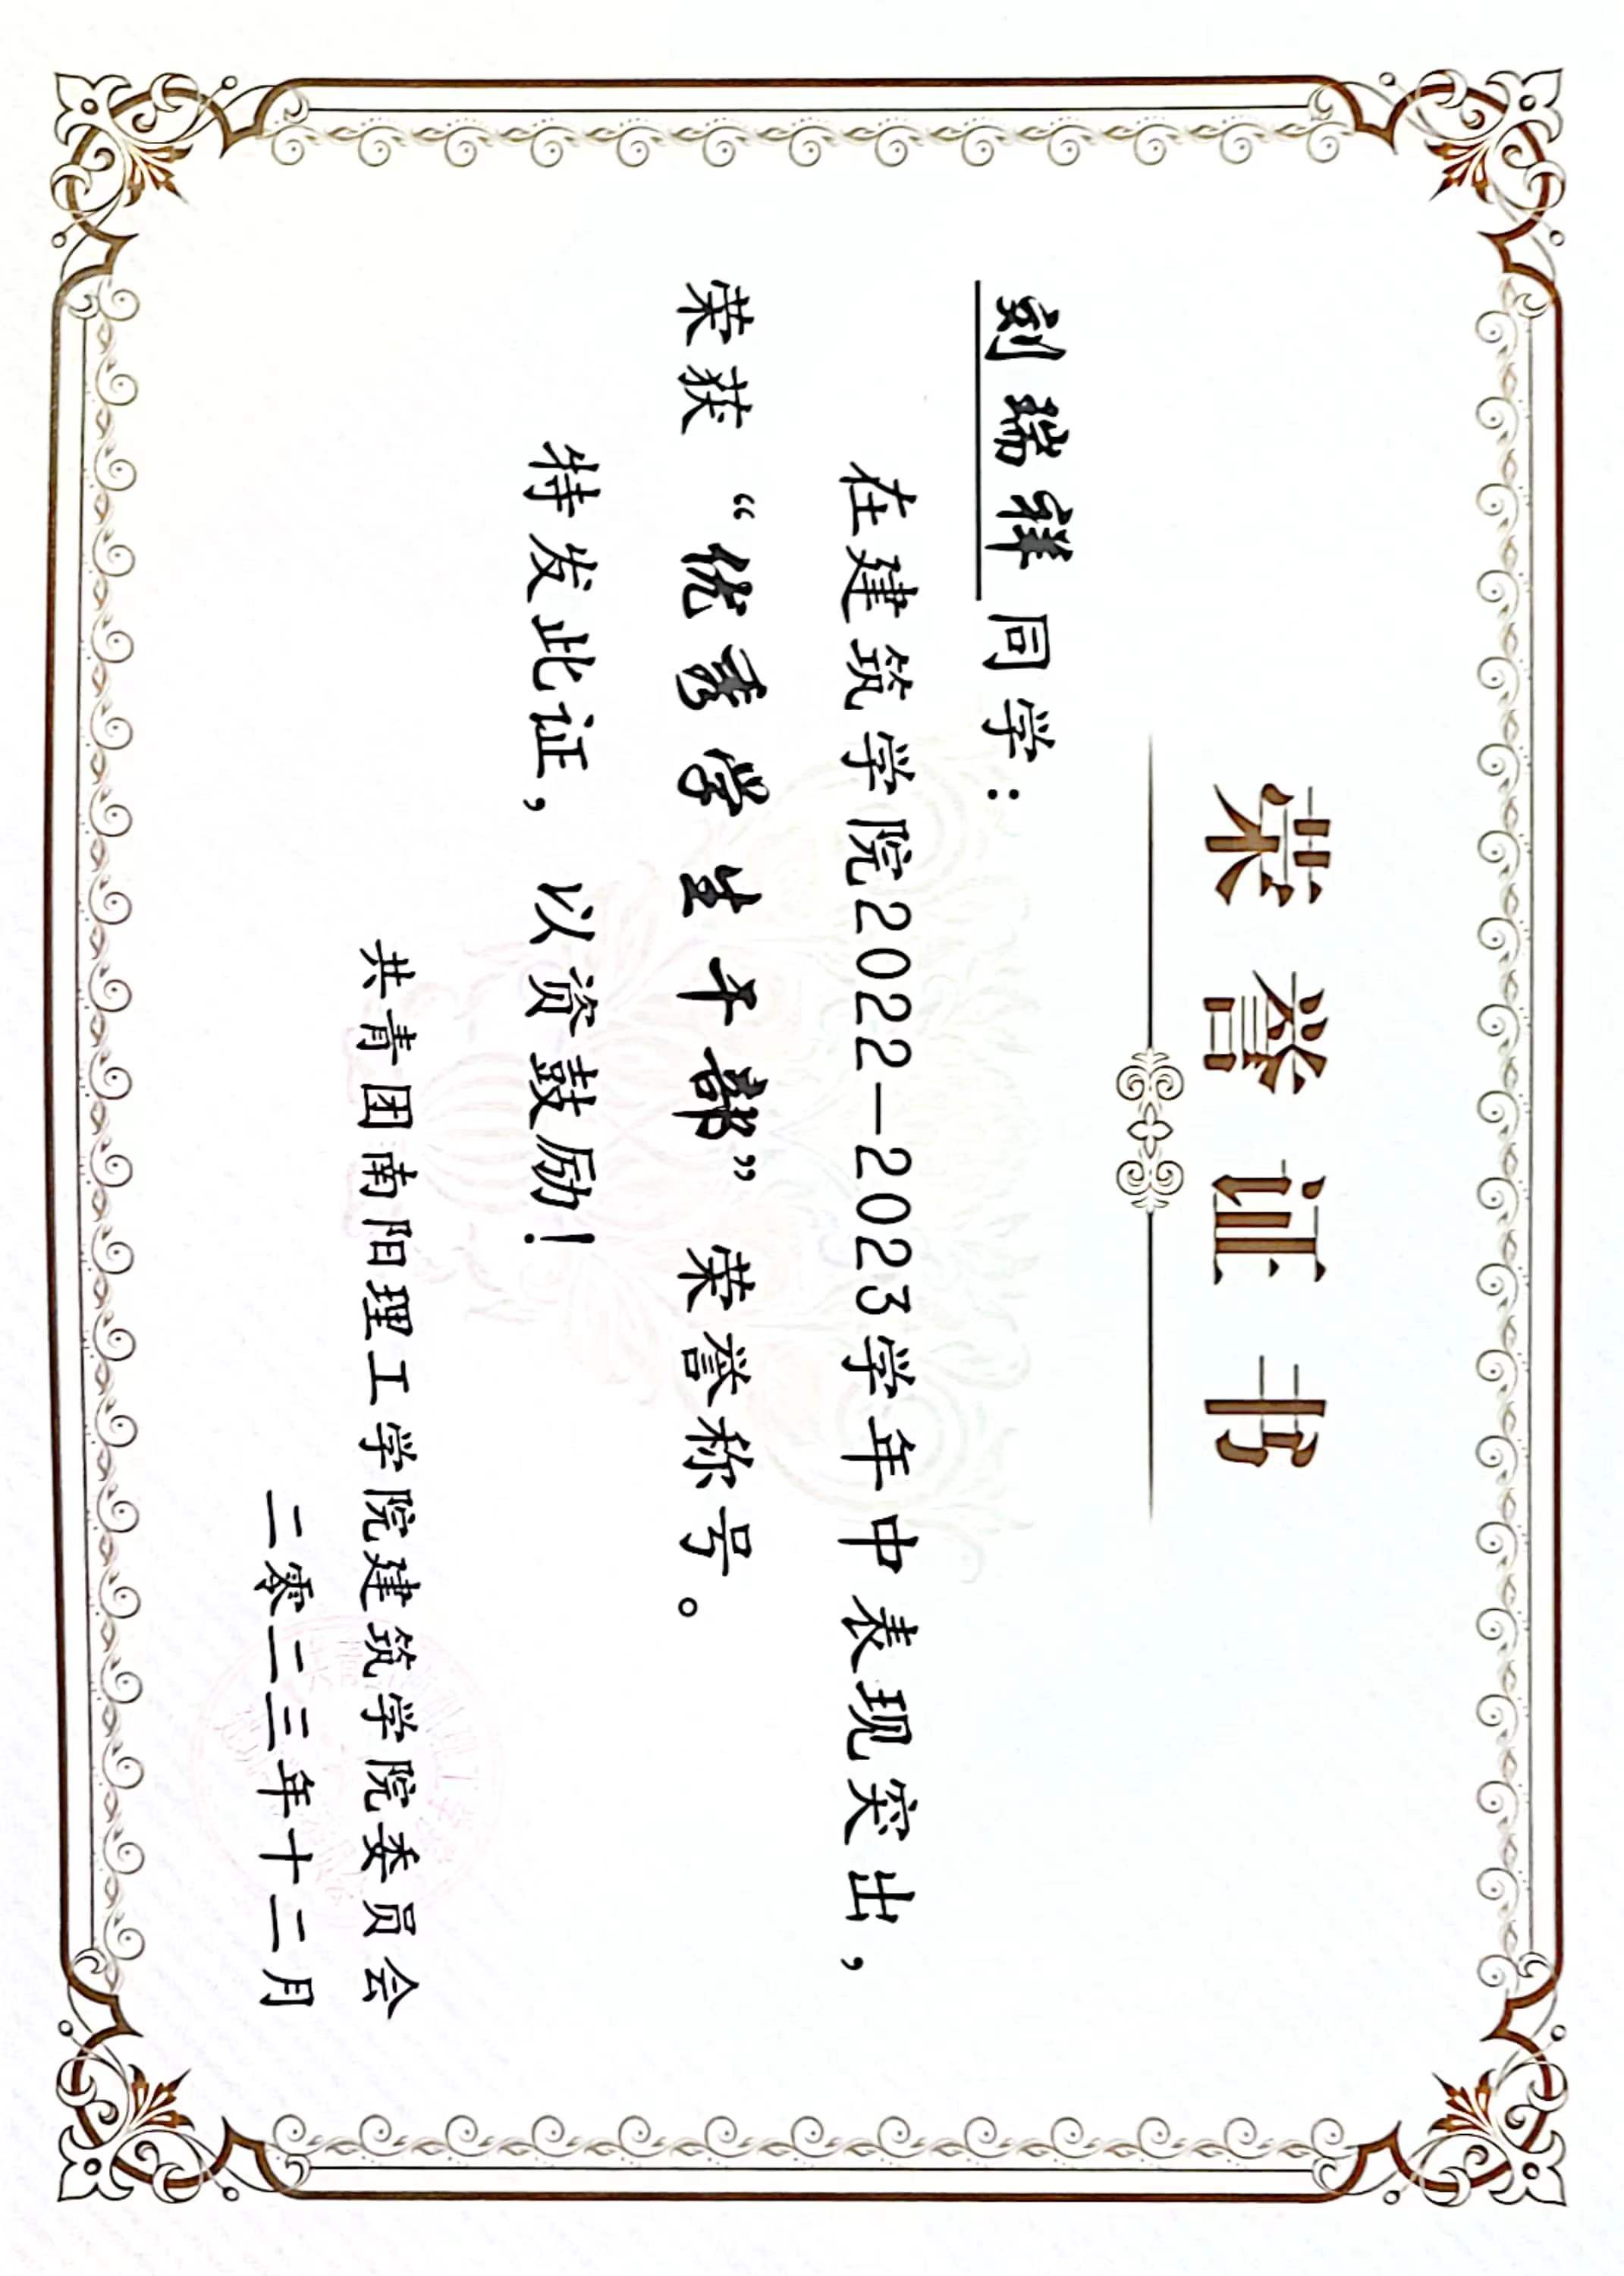 荣誉证书
刘瑞祥同学：
在建筑学院2022—2023学年中表现突出，
荣获“优秀学生干部”荣誉称号。
特发此证，以资鼓励！
共青团南阳理工学院建筑学院委员会
二零二三年十二月